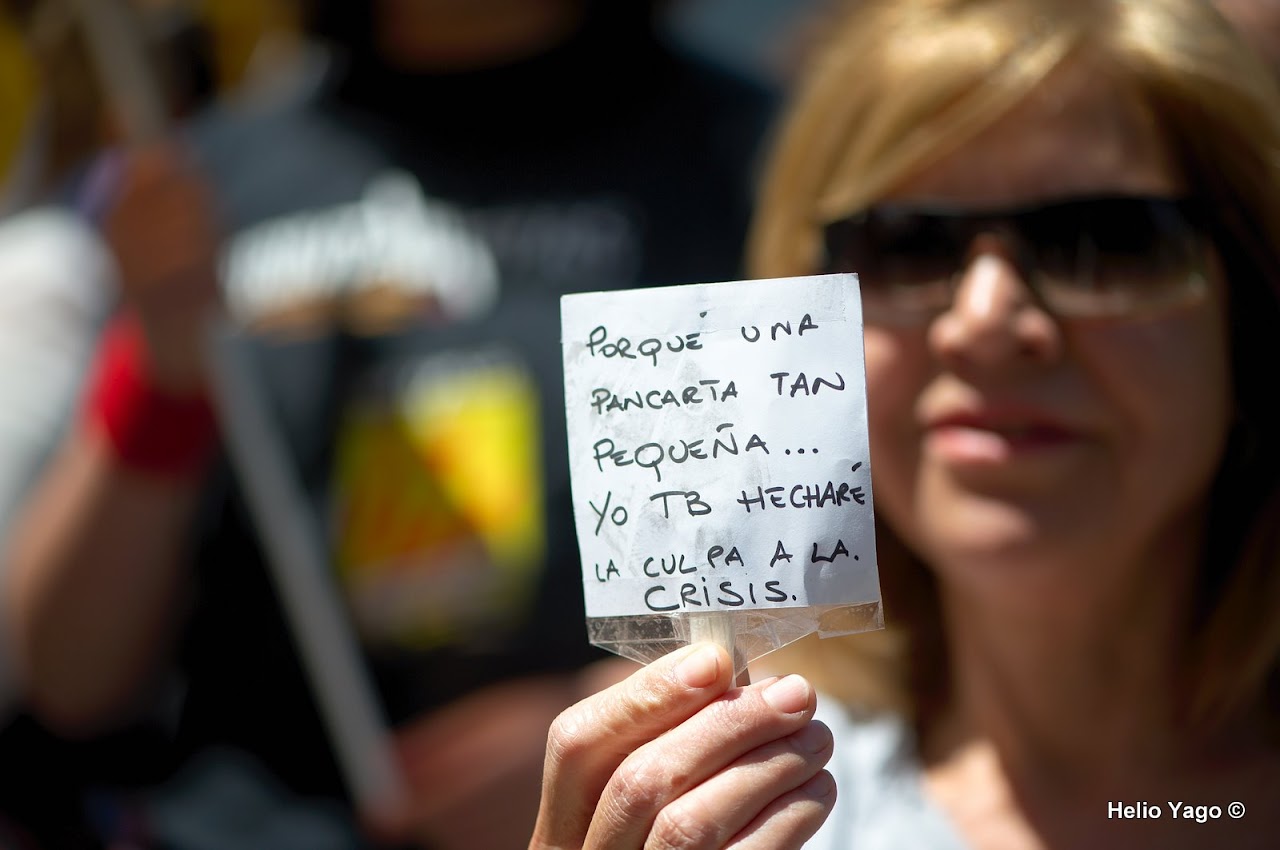 PORQUÉ UNA
PANCARTA TAN
PEQUEÑA...
YO TB HECHARÉ
LA CULPA A LA.
CRISIS.
Helio Yago ©